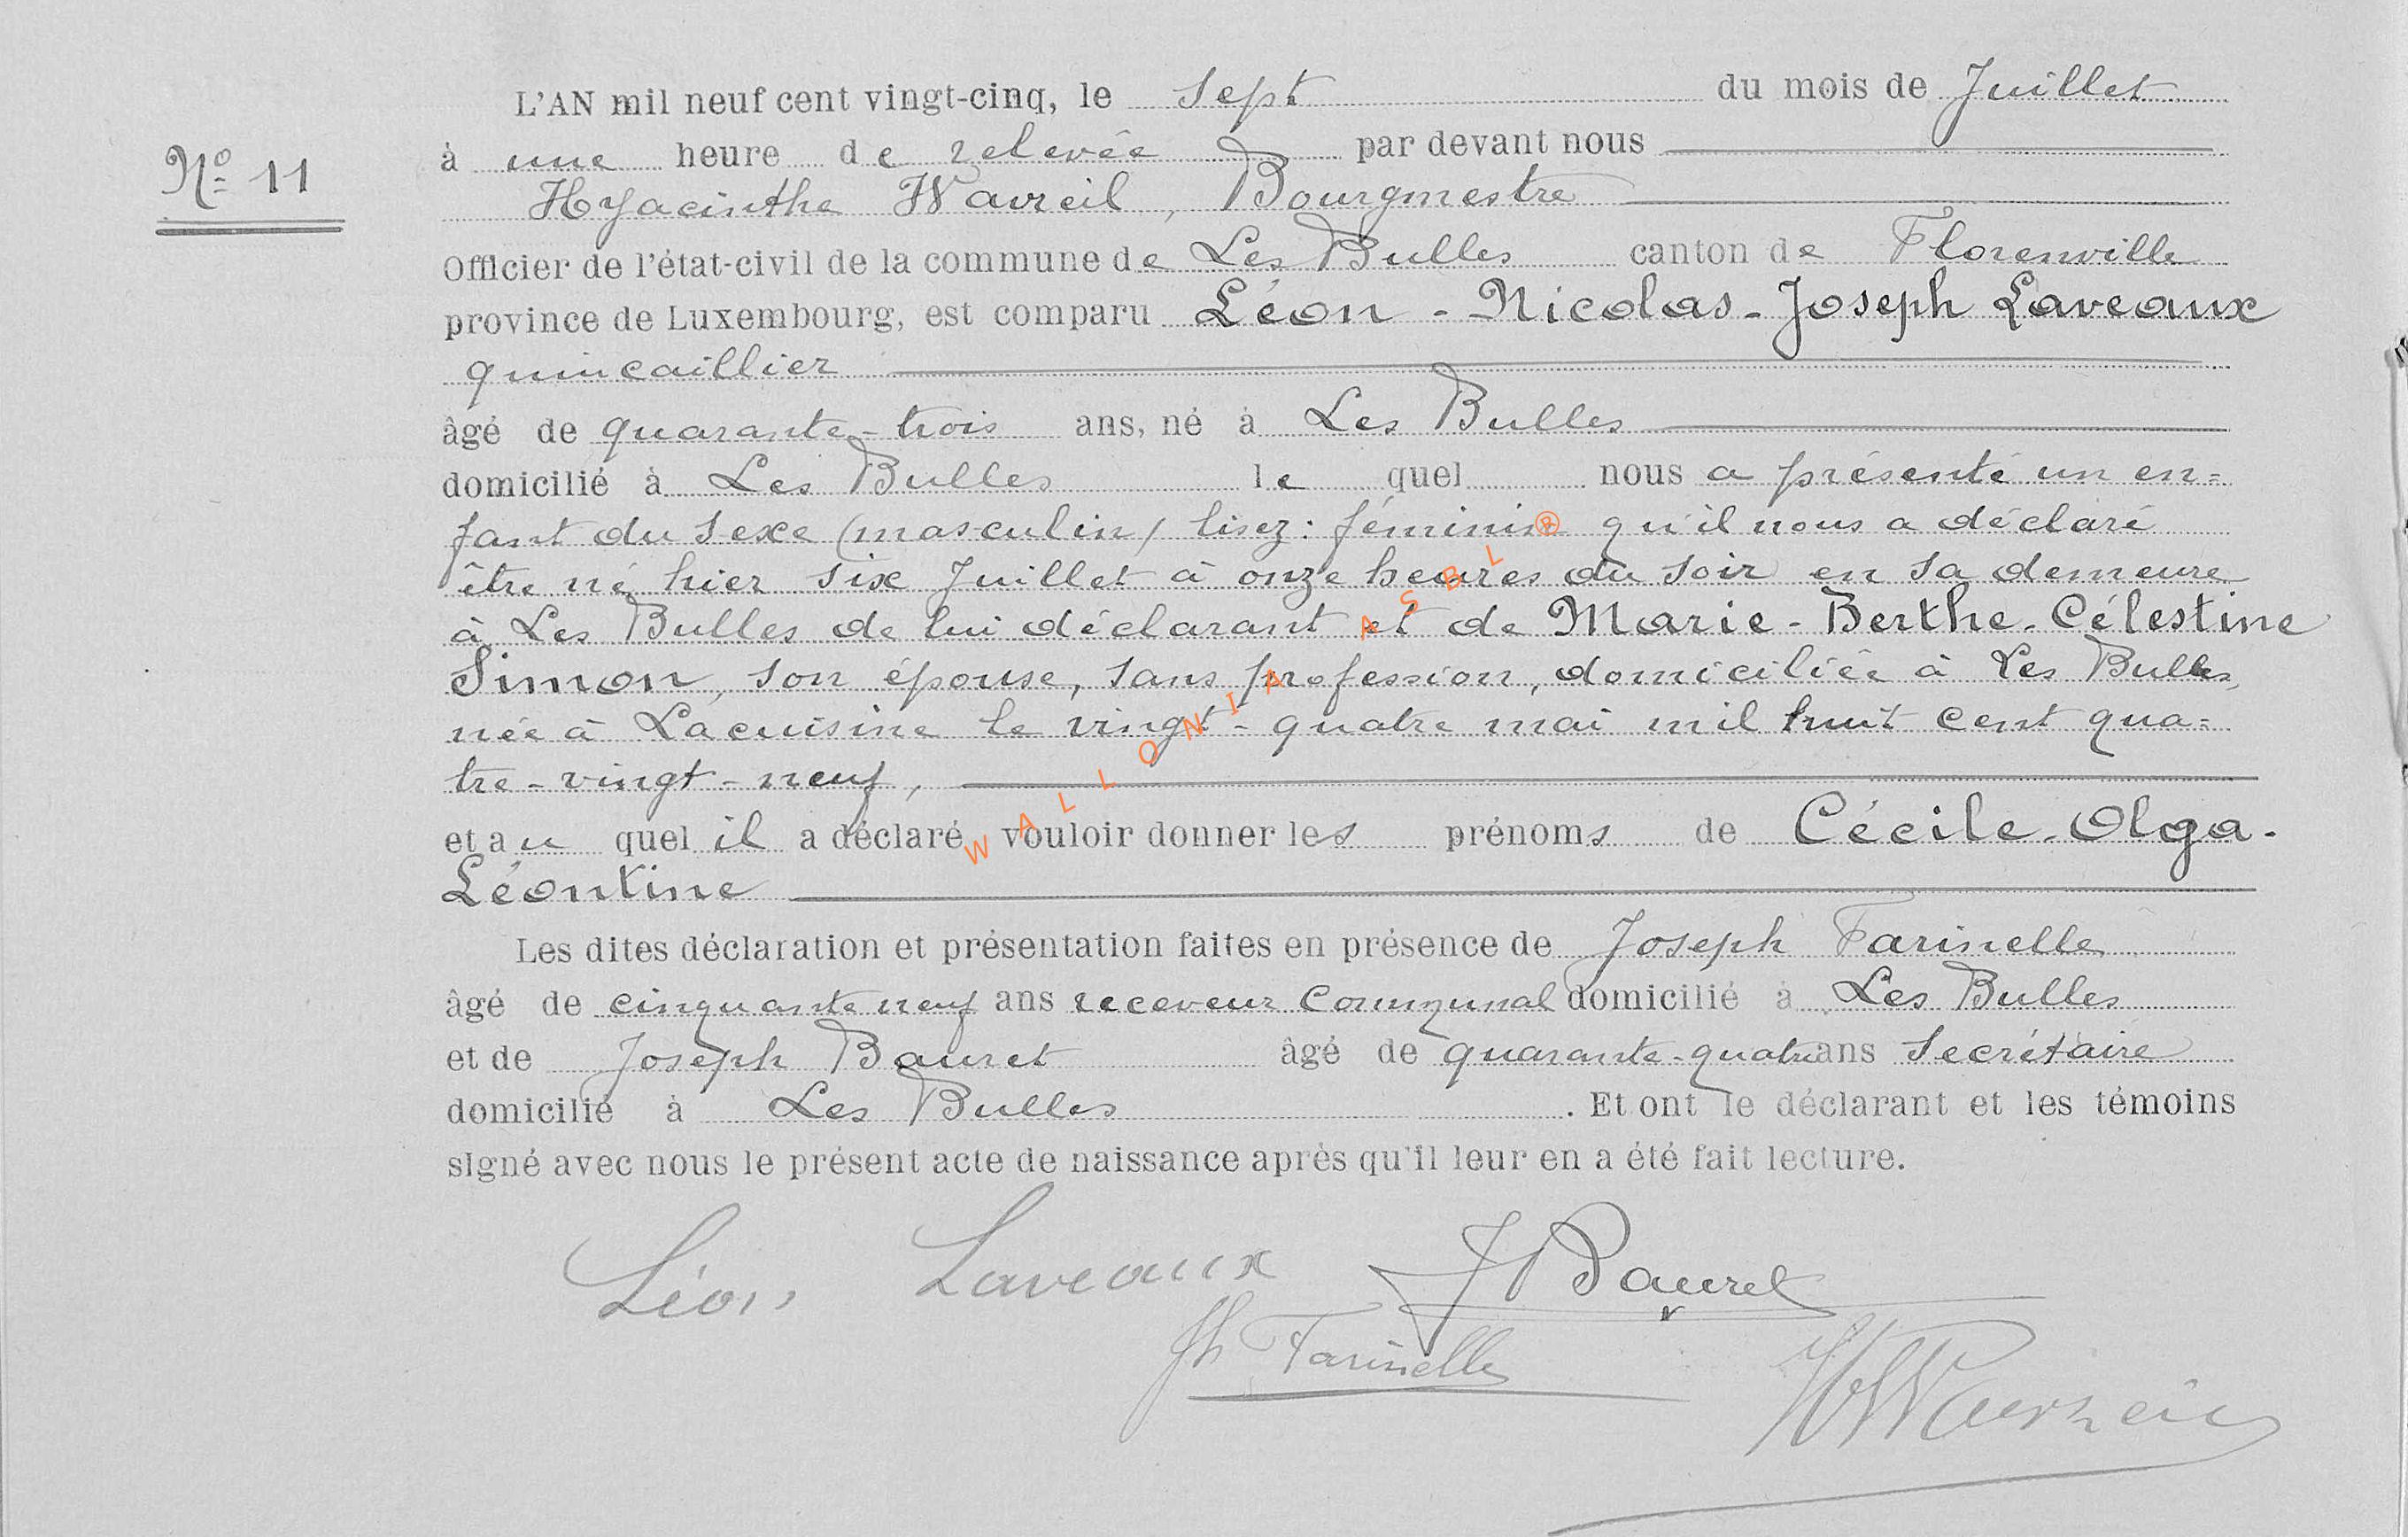 L'AN mil neuf cent vingt-cinq, le sept du mois de Juillet
Nº 11
à une heure de relevée par devant nous
Hyacinthe Wavreil, Bourgmestre
Officier de l'état-civil de la commune de Les Bulles canton de Florenville
province de Luxembourg, est comparu Léon-Nicolas-Joseph Laveaux
quincaillier
âgé de quarante-trois ans, né à Les Bulles
domicilié à Les Bulles le quel nous a présenté un en=
fant du sexe (masculin) lisez: féminin qu'il nous a déclaré
être né hier six Juillet à onze heures du soir en sa demeure
à Les Bulles de lui déclarant et de Marie-Berthe-Célestine
Simon, son épouse, sans profession, domiciliée à Les Bulles,
née à Lacuisine le vingt-quatre mai mil huit cent qua=
tre-vingt-neuf,
et au quel il a déclaré vouloir donner les prénoms de Cécile-Olga-
Léontine
Les dites déclaration et présentation faites en présence de Joseph Farinelle
âgé de cinquante neuf ans receveur communal domicilié à Les Bulles
et de Joseph Bauret âgé de quarante-quatre ans secrétaire
domicilié à Les Bulles. Et ont le déclarant et les témoins
signé avec nous le présent acte de naissance après qu'il leur en a été fait lecture.
Léon Laveaux J Bauret
Jh Farinelle
H Wavreil
WALLONIA ASBL ®